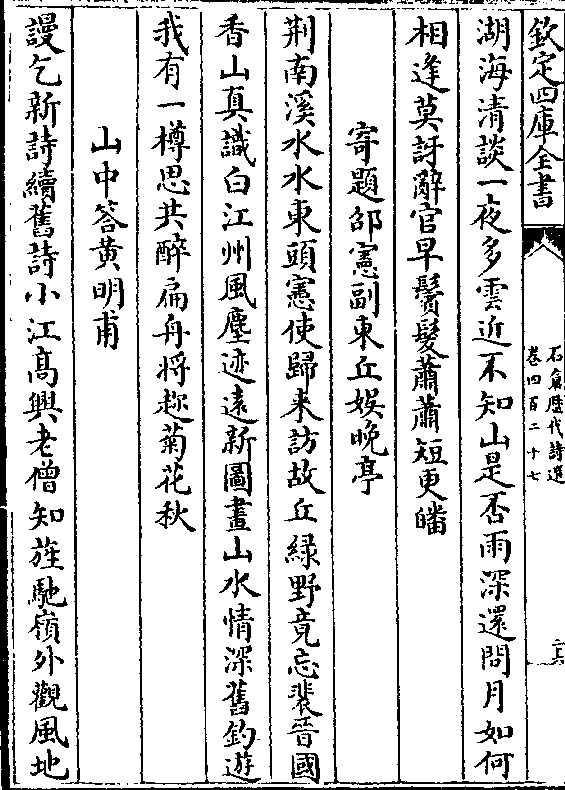 欽定四庫全書
石倉歷代詩選
卷四百二十七
湖海清談一夜多雲近不知山是否雨深還問月如何
相逢莫訝辭官早鬢髮蕭蕭短更皤
寄題邵憲副東丘娱晚亭
荆南溪水水東頭憲使歸来訪故丘緑野竟忘裴晉國
香山真識白江州風塵迹逺新圖畫山水情深舊釣遊
我有一樽思共醉扁舟將趂菊花秋
山中答黄明甫
謾乞新詩續舊詩小江髙興老僧知旌馳嶺外觀風地